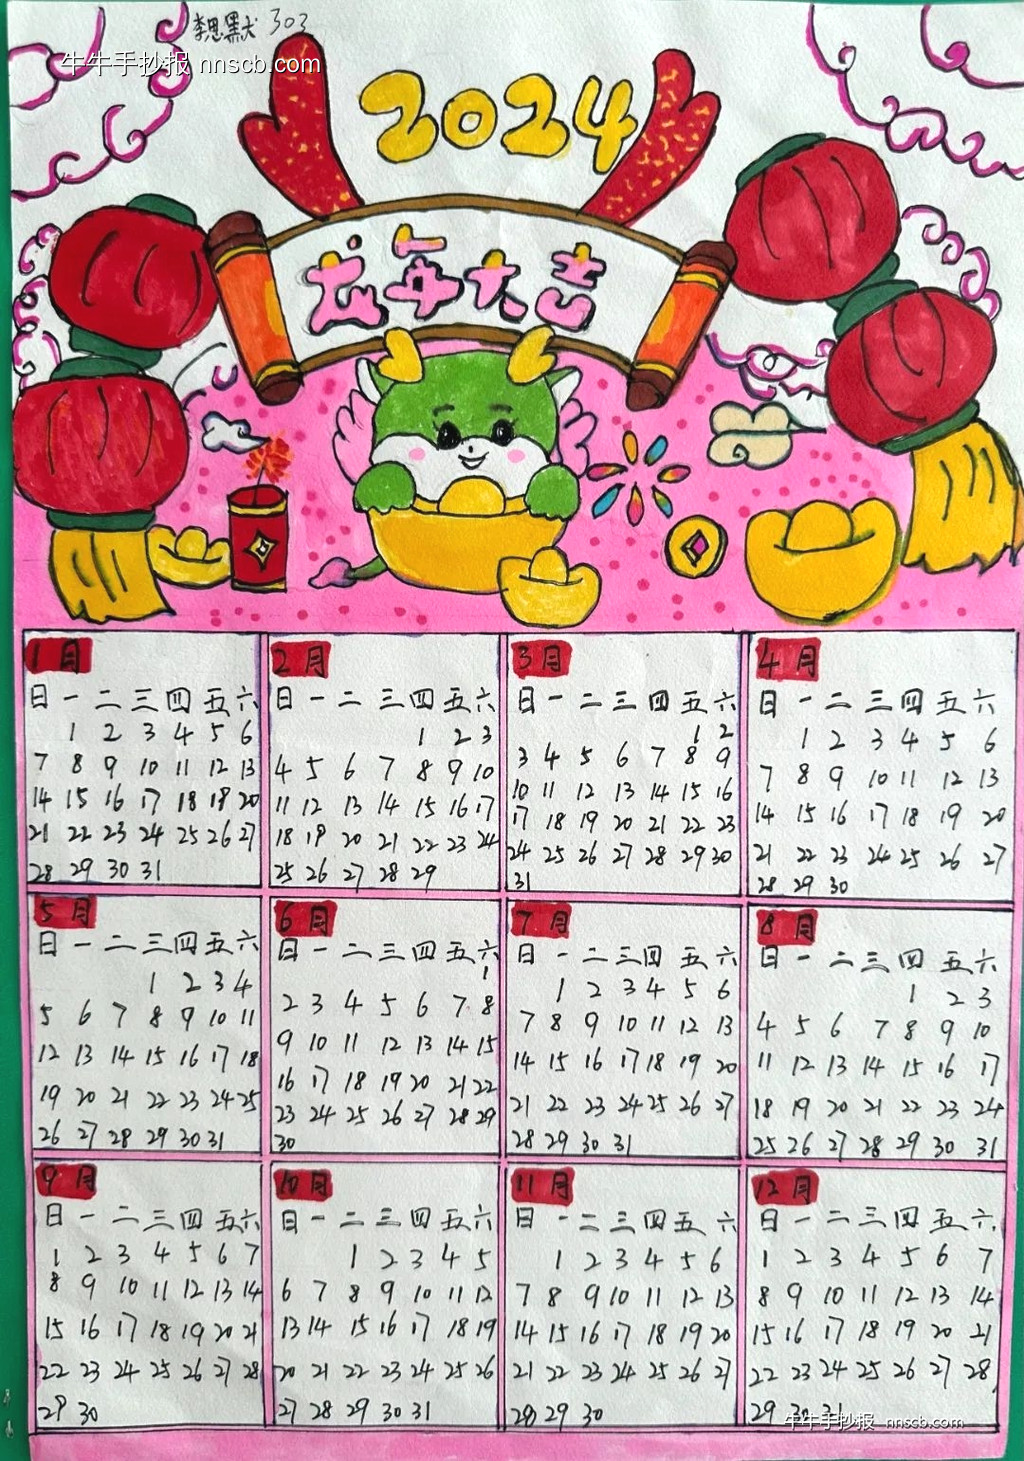 李思默 303
牛牛手抄报 nnscb.com
2024
龙年大吉
1月
日 一 二 三 四 五 六
1 2 3 4 5 6
7 8 9 10 11 12 13
14 15 16 17 18 19 20
21 22 23 24 25 26 27
28 29 30 31
2月
日 一 二 三 四 五 六
1 2 3
4 5 6 7 8 9 10
11 12 13 14 15 16 17
18 19 20 21 22 23 24
25 26 27 28 29
3月
日 一 二 三 四 五 六
1 2
3 4 5 6 7 8 9
10 11 12 13 14 15 16
17 18 19 20 21 22 23
24 25 26 27 28 29 30
31
4月
日 一 二 三 四 五 六
1 2 3 4 5 6
7 8 9 10 11 12 13
14 15 16 17 18 19 20
21 22 23 24 25 26 27
28 29 30
5月
日 一 二 三 四 五 六
1 2 3 4
5 6 7 8 9 10 11
12 13 14 15 16 17 18
19 20 21 22 23 24 25
26 27 28 29 30 31
6月
日 一 二 三 四 五 六
1
2 3 4 5 6 7 8
9 10 11 12 13 14 15
16 17 18 19 20 21 22
23 24 25 26 27 28 29
30
7月
日 一 二 三 四 五 六
1 2 3 4 5 6
7 8 9 10 11 12 13
14 15 16 17 18 19 20
21 22 23 24 25 26 27
28 29 30 31
8月
日 一 二 三 四 五 六
1 2 3
4 5 6 7 8 9 10
11 12 13 14 15 16 17
18 19 20 21 22 23 24
25 26 27 28 29 30 31
9月
日 一 二 三 四 五 六
1 2 3 4 5 6 7
8 9 10 11 12 13 14
15 16 17 18 19 20 21
22 23 24 25 26 27 28
29 30
10月
日 一 二 三 四 五 六
1 2 3 4 5
6 7 8 9 10 11 12
13 14 15 16 17 18 19
20 21 22 23 24 25 26
27 28 29 30 31
11月
日 一 二 三 四 五 六
1 2 3 4 5 6
7 8 9 10 11 12 13
14 15 16 17 18 19 20
21 22 23 24 25 26 27
28 29 30
12月
日 一 二 三 四 五 六
1 2 3 4 5 6 7
8 9 10 11 12 13 14
15 16 17 18 19 20 21
22 23 24 25 26 27 28
29 30 31
牛牛手抄报 nnscb.com